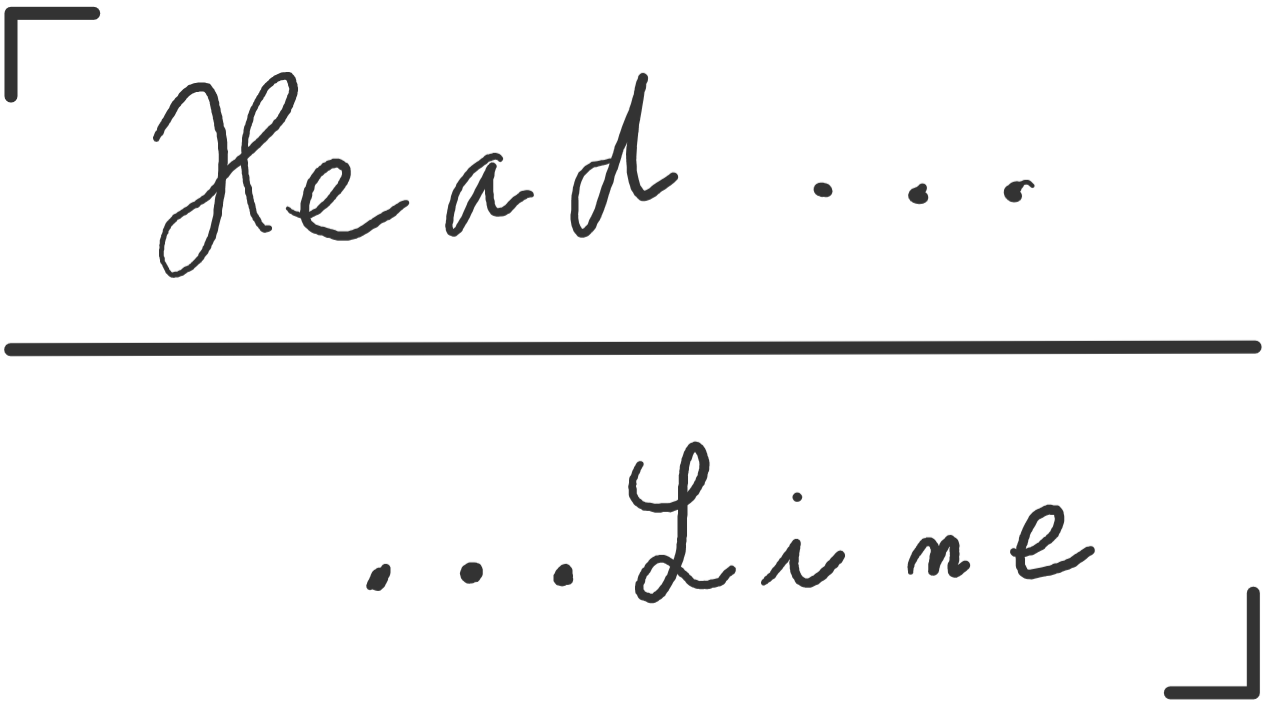 Head ...
...Line